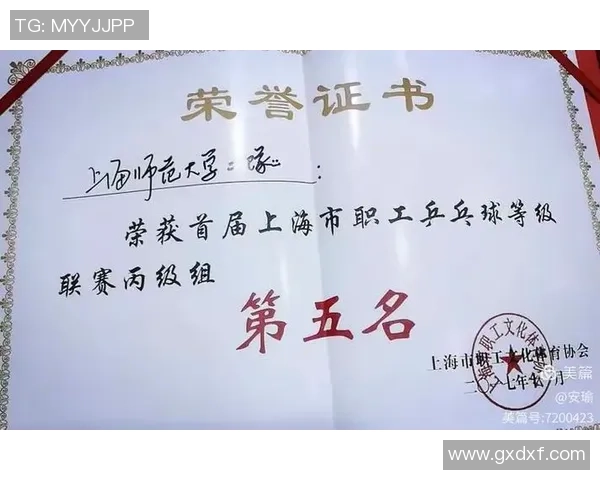 TG: MYYJJPP
荣誉证书
上海师范大学二队:
荣获首届上海市职工乒乓球等级
联赛丙级组
第五名
上海市职工文化体育协会
二〇一七年十一月
美篇
@安瑜
美篇号:7200423
www.gxdxf.com